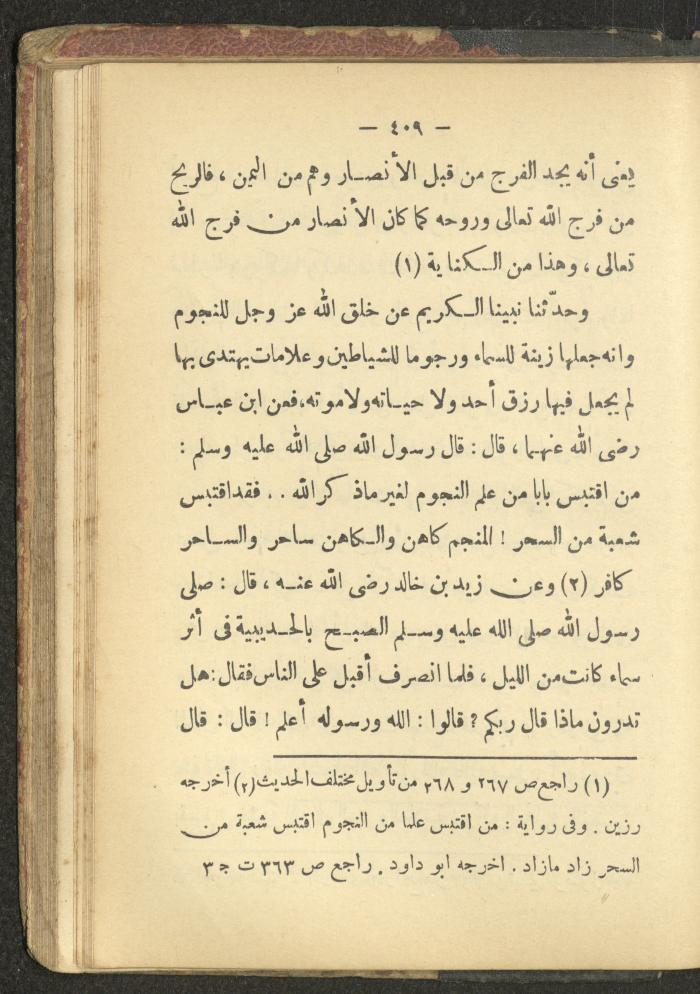 — ٤٠٩ —
يعنى أنه يجد الفرج من قبل الأنصار وهم من اليمن ، فالريح
من فرج الله تعالى وروحه كما كان الأنصار من فرج الله
تعالى ، وهذا من الكناية (١)
وحدّثنا نبينا الكريم عن خلق الله عز وجل للنجوم
وانه جعلها زينة للسماء ورجوما للشياطين وعلامات يهتدى بها
لم يجعل فيها رزق أحد ولا حياته ولا موته، فعن ابن عباس
رضى الله عنهما ، قال : قال رسول الله صلى الله عليه وسلم :
من اقتبس بابا من علم النجوم لغير ماذكر الله . . فقد اقتبس
شعبة من السحر ! المنجم كاهن والكاهن ساحر والساحر
كافر (٢) وعن زيد بن خالد رضى الله عنه ، قال : صلى
رسول الله صلى الله عليه وسلم الصبح بالحديبية فى أثر
سماء كانت من الليل ، فلما انصرف أقبل على الناس فقال : هل
تدرون ماذا قال ربكم ؟ قالوا : الله ورسوله أعلم ! قال : قال
(١) راجع ص ٢٦٧ و ٢٦٨ من تأويل مختلف الحديث (٢) أخرجه
رزين . وفى رواية : من اقتبس علما من النجوم اقتبس شعبة من
السحر زاد مازاد . اخرجه ابو داود . راجع ص ٣٦٣ ت ج ٣